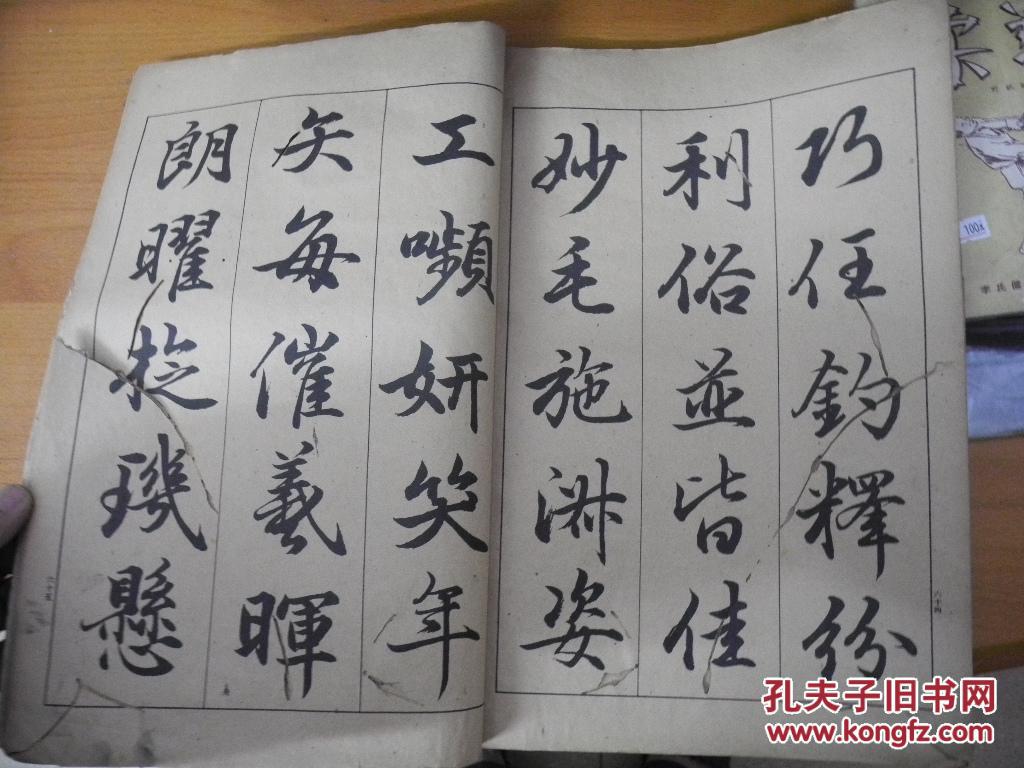 巧任釣釋紛
利俗並皆佳
妙毛施淑姿
六十四
工嚬妍笑年
矢每催羲暉
朗曜琁璣懸
六十五
孔夫子旧书网
www.kongfz.com